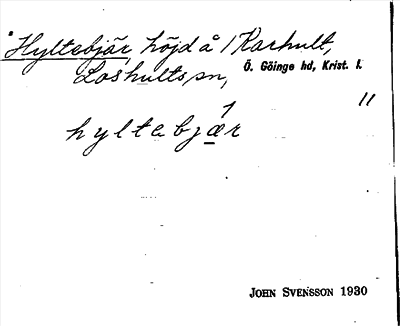 Hyltebjär, höjd å 1 Karhult,
Loshults sn, Ö. Göinge hd, Krist. l.
11
hyltebjær
JOHN SVENSSON 1930